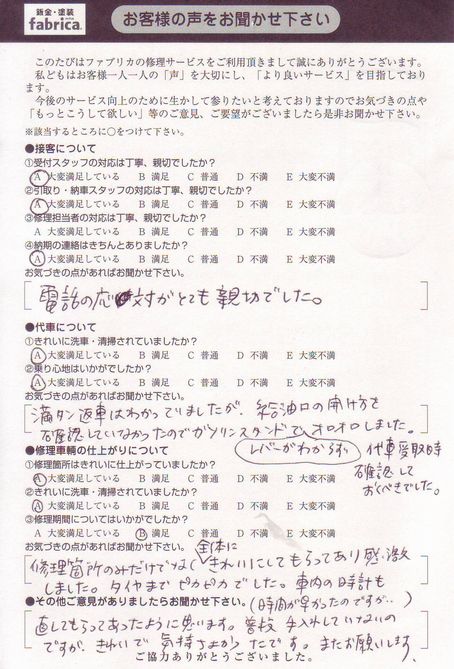 鈑金・塗装
fabrica.
お客様の声をお聞かせ下さい
このたびはファブリカの修理サービスをご利用頂きまして誠にありがとうございます。
私どもはお客様一人一人の「声」を大切にし、「より良いサービス」を目指しております。
今後のサービス向上のために生かして参りたいと考えておりますのでお気づきの点や
「もっとこうして欲しい」等のご意見、ご要望がございましたら是非お聞かせ下さい。
※該当するところに○をつけて下さい。
●接客について
①受付スタッフの対応は丁寧、親切でしたか?
A 大変満足している B 満足 C 普通 D 不満 E 大変不満
②引取り・納車スタッフの対応は丁寧、親切でしたか?
A 大変満足している B 満足 C 普通 D 不満 E 大変不満
③修理担当者の対応は丁寧、親切でしたか?
A 大変満足している B 満足 C 普通 D 不満 E 大変不満
④納期の連絡はきちんとありましたか?
A 大変満足している B 満足 C 普通 D 不満 E 大変不満
お気づきの点があればお聞かせ下さい。
電話の応対がとても親切でした。
●代車について
①きれいに洗車・清掃されていましたか?
A 大変満足している B 満足 C 普通 D 不満 E 大変不満
②乗り心地はいかがでしたか?
A 大変満足している B 満足 C 普通 D 不満 E 大変不満
お気づきの点があればお聞かせ下さい。
満タン返車はわかっていましたが、給油口の開け方を
確認していなかったのでガソリンスタンドでオロオロしました。
レバーがわからず
代車受取時
確認して
おくべきでした。
●修理車輌の仕上がりについて
①修理箇所はきれいに仕上がっていましたか?
A 大変満足している B 満足 C 普通 D 不満 E 大変不満
②きれいに洗車・清掃されていましたか?
A 大変満足している B 満足 C 普通 D 不満 E 大変不満
③修理期間についてはいかがでしたか?
A 大変満足している B 満足 C 普通 D 不満 E 大変不満
お気づきの点があればお聞かせ下さい。
全体に
修理箇所のみだけでなくきれいにしてもらってあり感激
しました。タイヤまでピカピカでした。車内の時計も
●その他ご意見がありましたらお聞かせ下さい。
(時間が早かったのですが…)
直してもらってあったように思います。普段手入れしていないの
ですが、きれいで気持ちよかったです。またお願いします。
ご協力ありがとうございました。